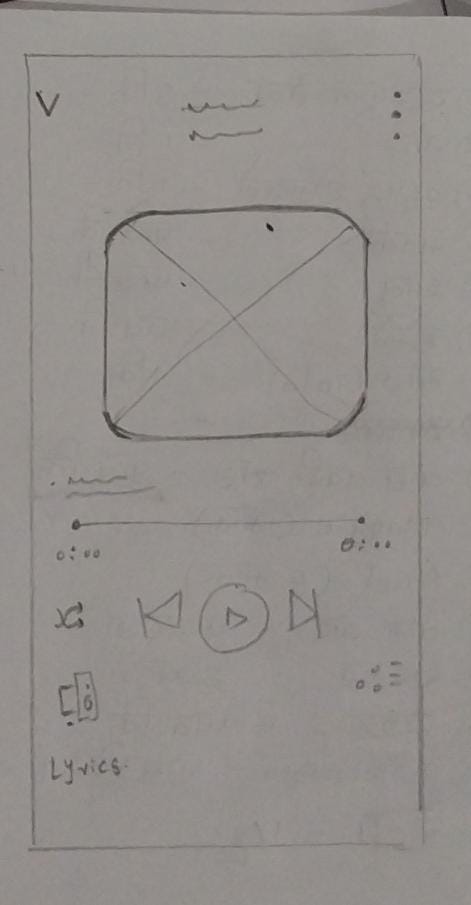 0:00 0:00
Lyrics.